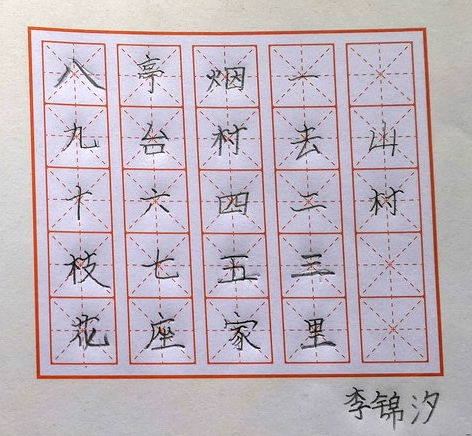 山村
一去二三里
烟村四五家
亭台六七座
八九十枝花
李锦汐